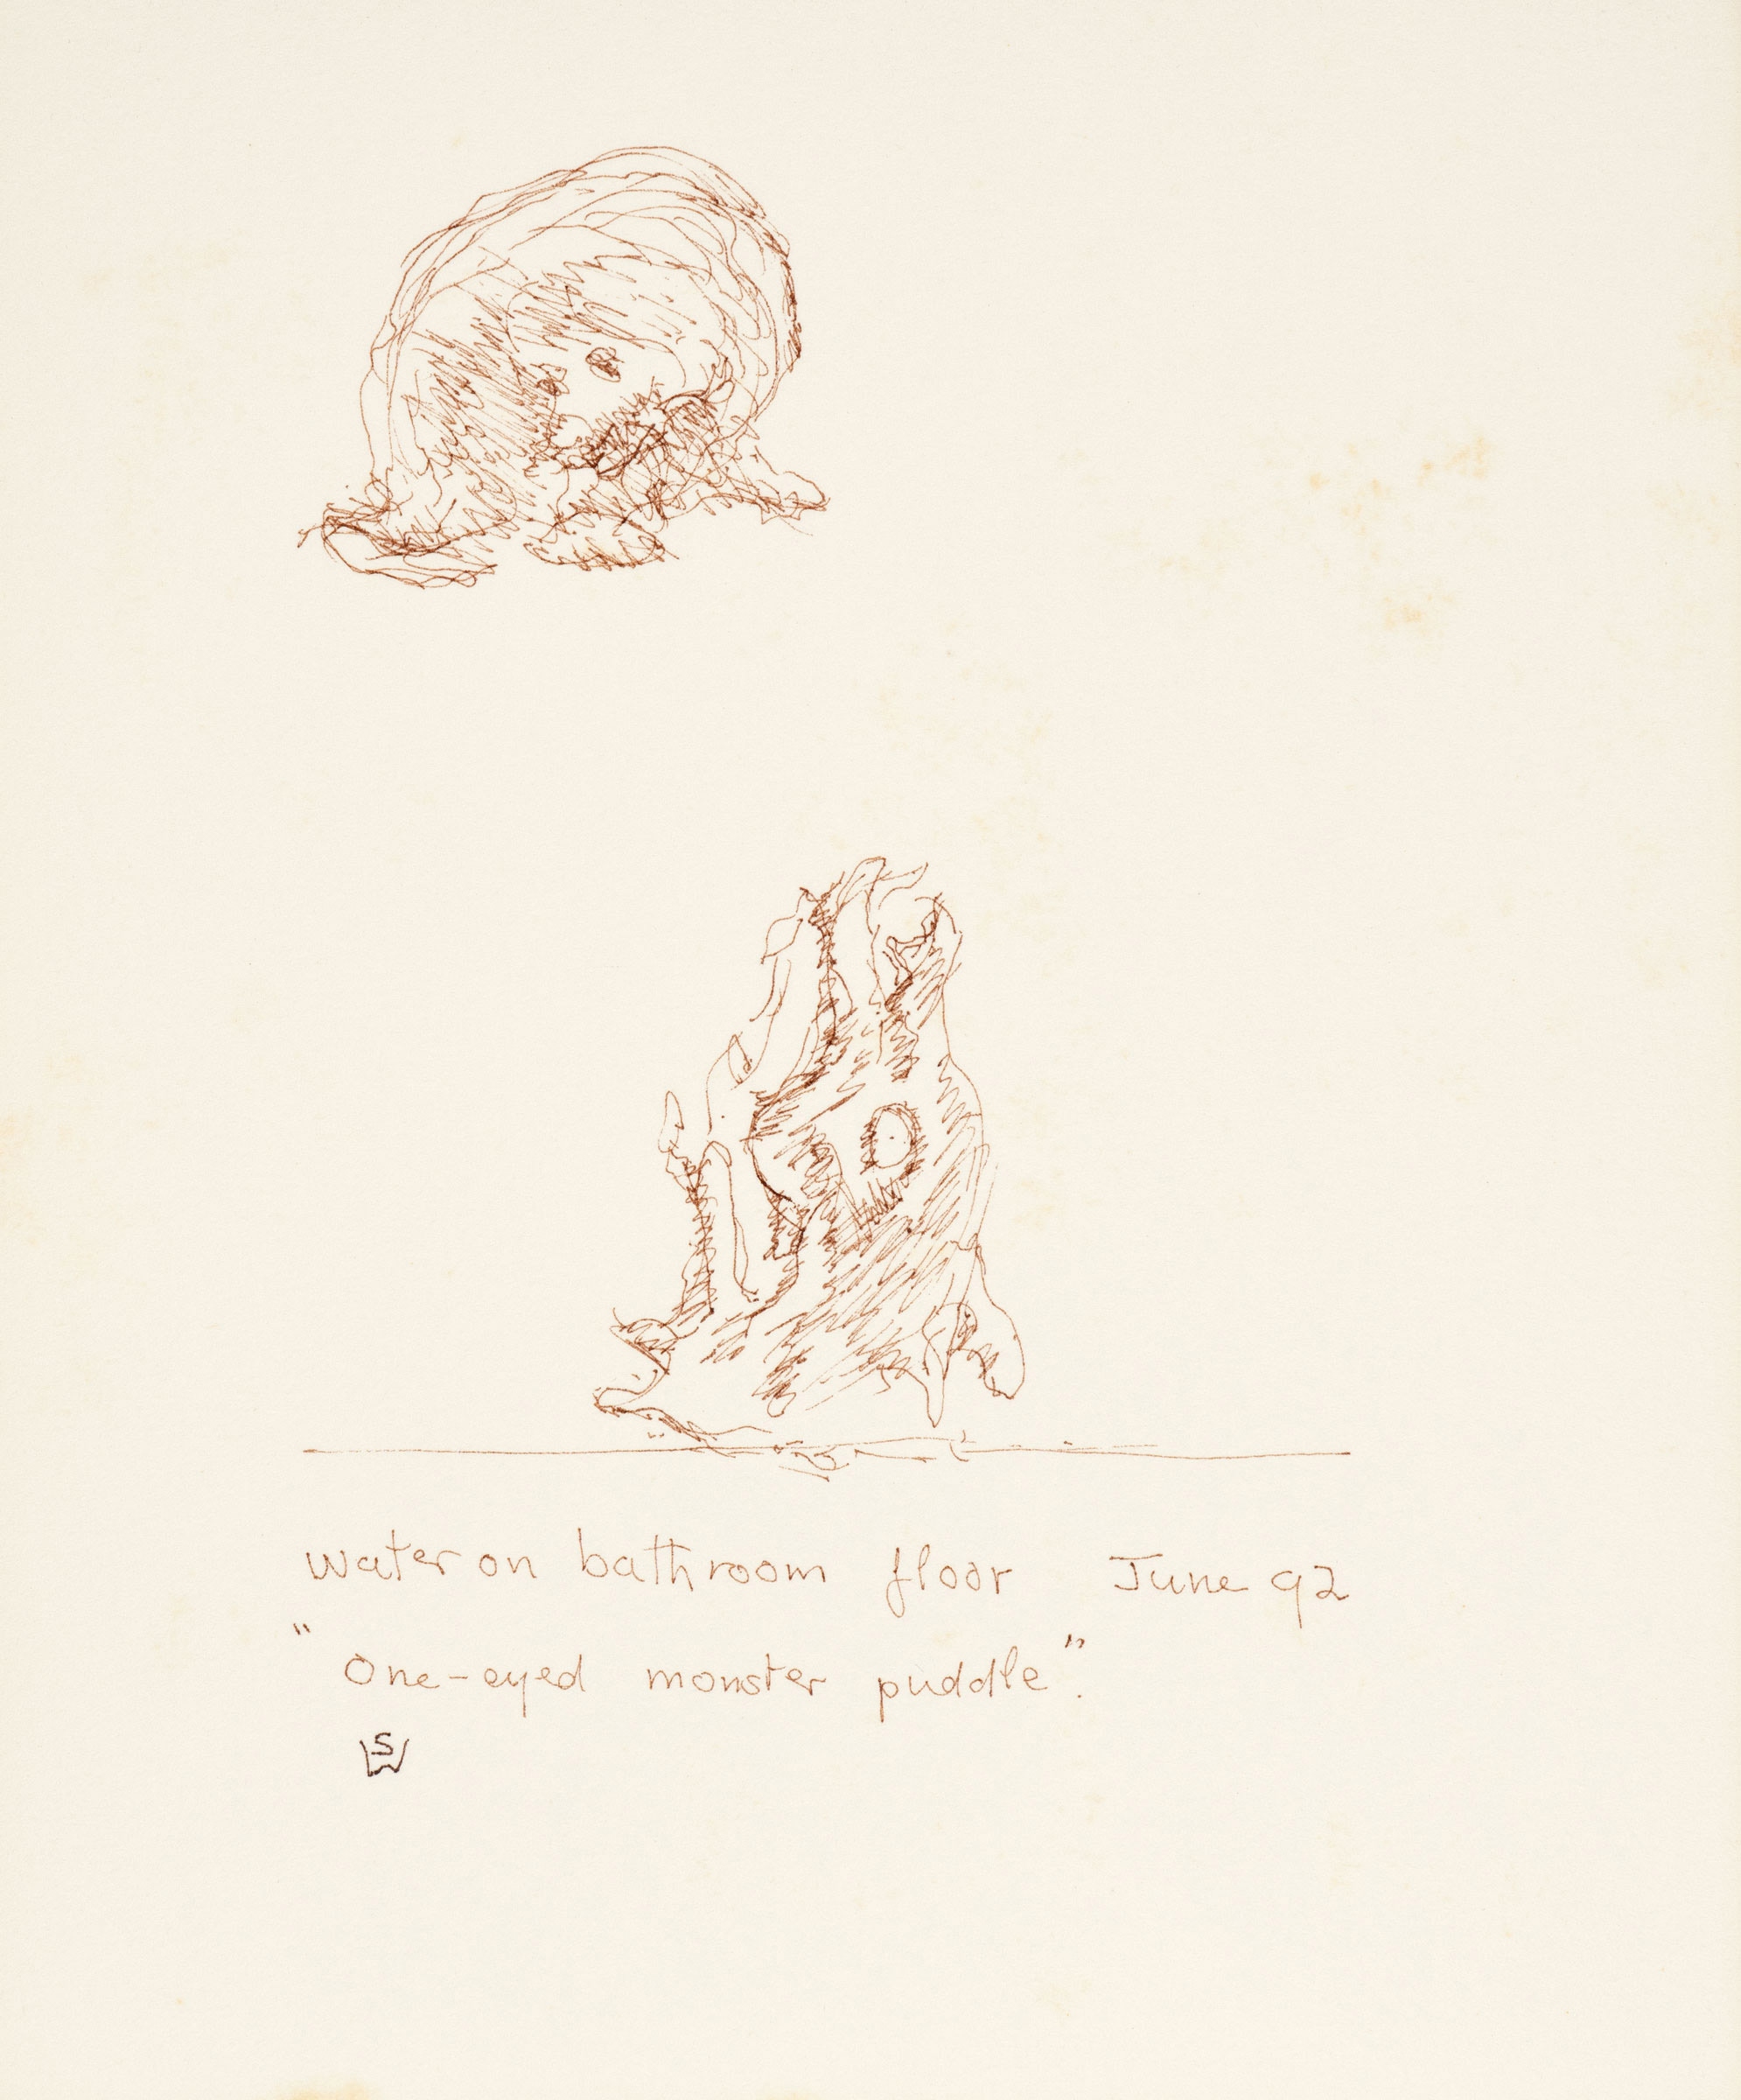 water on bathroom floor June 92
"One-eyed monster puddle".
SW